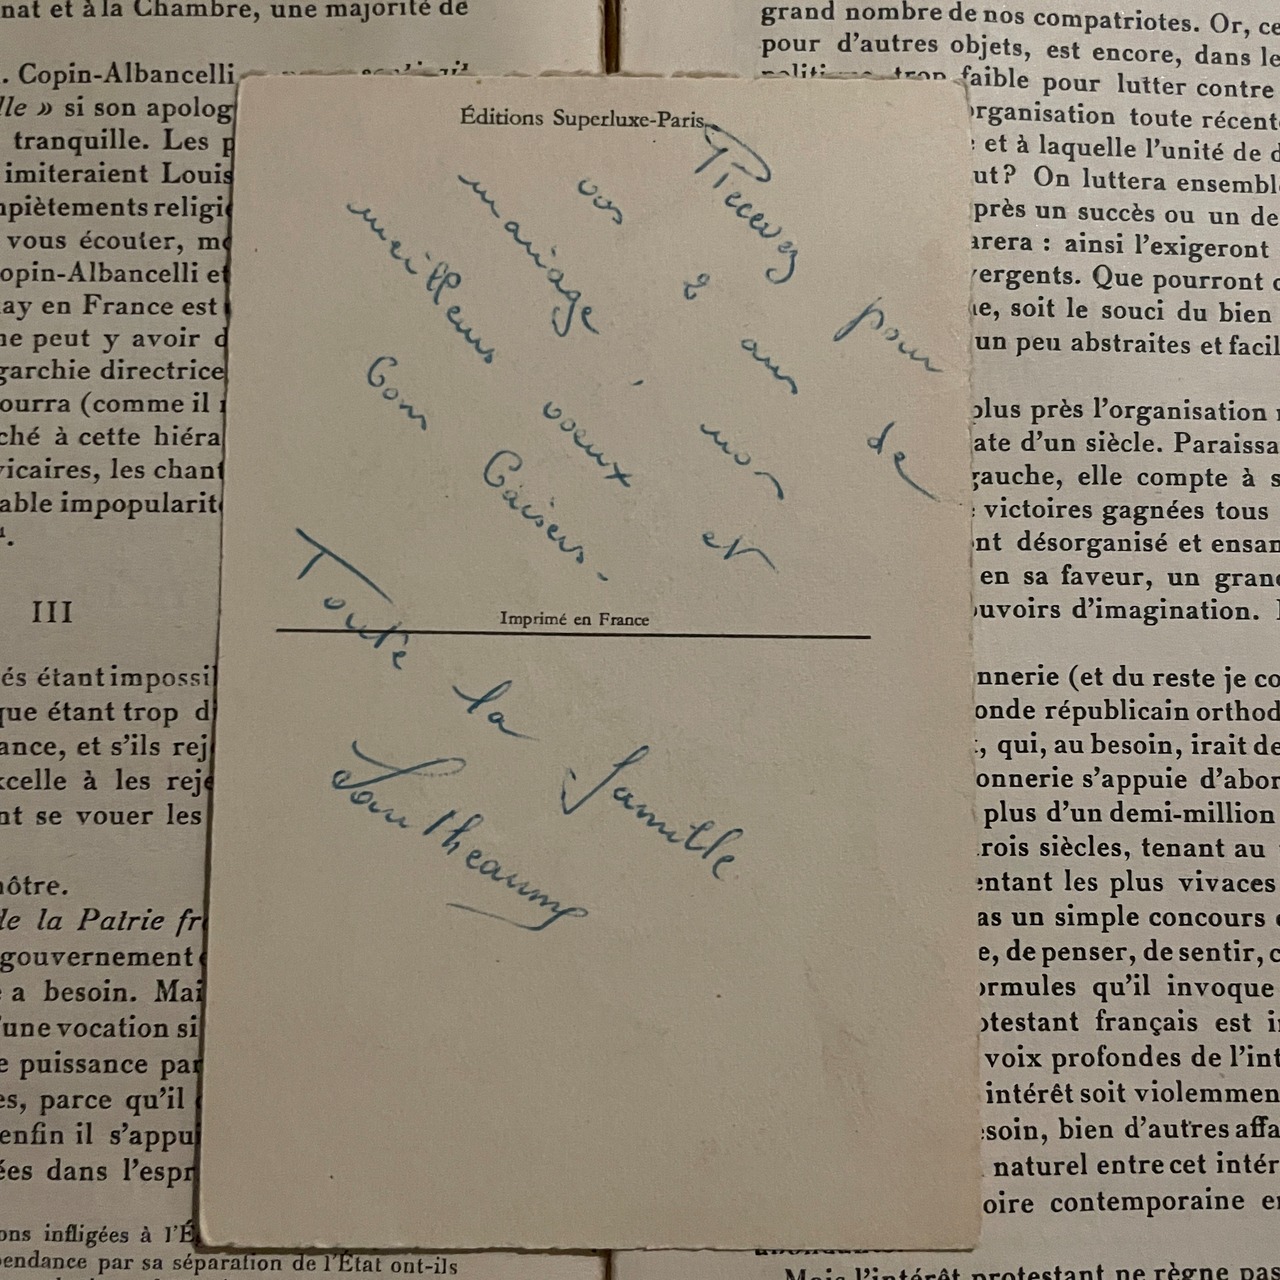 nat et à la Chambre, une majorité de
. Copin-Albancelli
lle » si son apolog
tranquille. Les
imiteraient Louis
piètements religi
vous écouter, m
opin-Albancelli et
ay en France est
ne peut y avoir d
garchie directrice
ourra (comme il
ché à cette hiéra
vicaires, les chant
able impopularit
III
és étant impossi
que étant trop d
ance, et s'ils rej
xcelle à les reje
nt se vouer les
nôtre.
de la Patrie fr
gouvernement
a besoin. Mai
'une vocation si
e puissance par
es, parce qu'il
enfin il s'appu
ées dans l'espr
ons infligées à l'É
pendance par sa séparation de l'État ont-ils
Éditions Superluxe-Paris
Recevez pour
vos 2 ans de
mariage, nos
meilleurs voeux et
Bons Baisers.
Imprimé en France
Toute la famille
Lantheaume
grand nombre de nos compatriotes. Or, ce
pour d'autres objets, est encore, dans le
trop faible pour lutter contre
organisation toute récent
et à laquelle l'unité de d
ut? On luttera ensembl
près un succès ou un de
arera : ainsi l'exigeront
vergents. Que pourront
ne, soit le souci du bien
un peu abstraites et facil
plus près l'organisation
ate d'un siècle. Paraissa
gauche, elle compte à s
victoires gagnées tous
nt désorganisé et ensan
en sa faveur, un gran
ouvoirs d'imagination.
nnerie (et du reste je co
onde républicain orthod
, qui, au besoin, irait de
onnerie s'appuie d'abor
plus d'un demi-million
rois siècles, tenant au
entant les plus vivaces
as un simple concours
e, de penser, de sentir, c
ormules qu'il invoque
otestant français est i
voix profondes de l'int
intérêt soit violemmen
esoin, bien d'autres affa
naturel entre cet intér
oire contemporaine e
Mais l'intérêt protestant ne règne pas